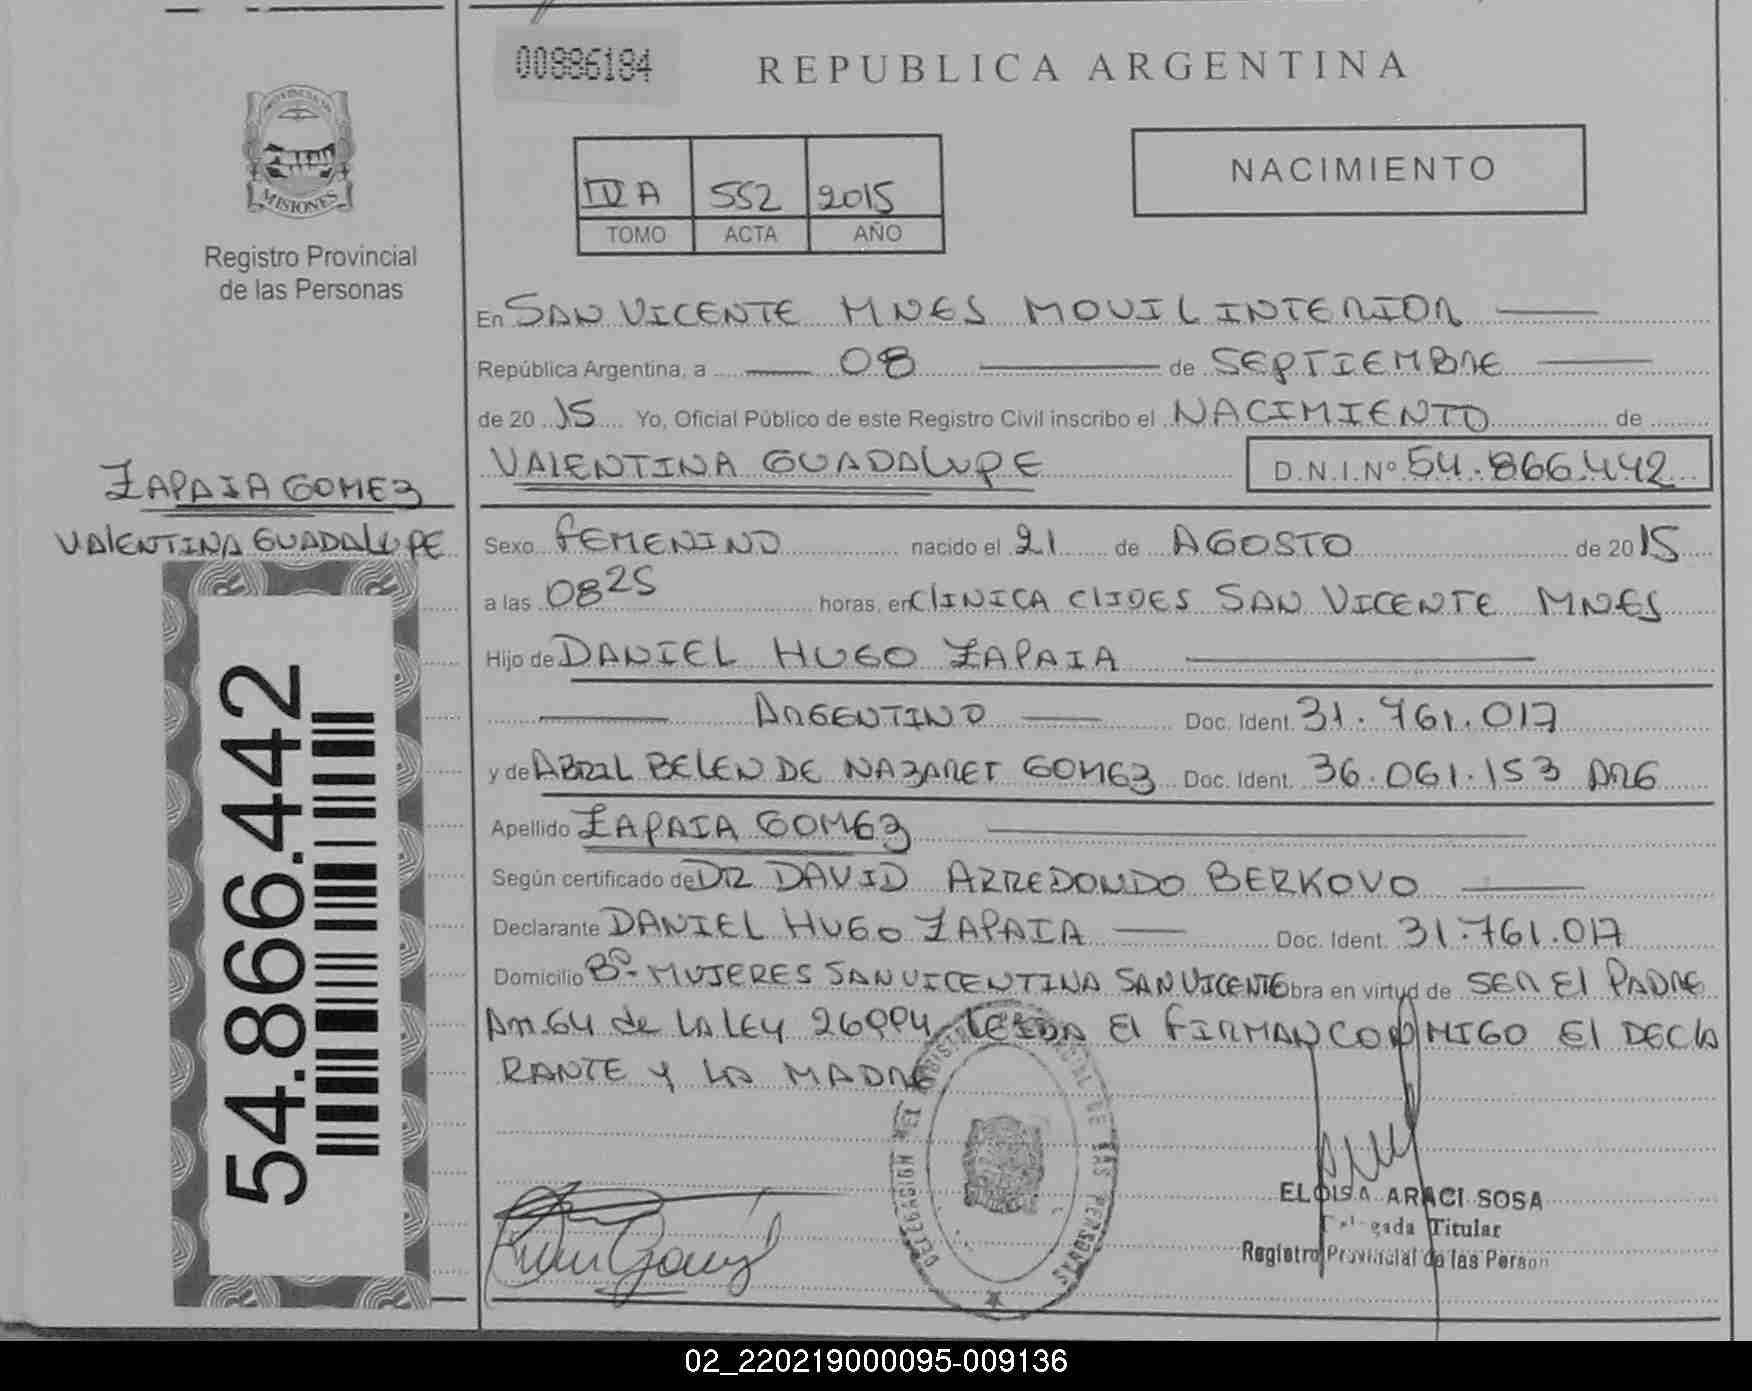 00886184
REPUBLICA ARGENTINA
PROVINCIA DE MISIONES
Registro Provincial
de las Personas
IV A 552 2015
TOMO ACTA AÑO
NACIMIENTO
En SAN VICENTE MNES MOVIL INTERIOR
República Argentina, a 08 de SEPTIEMBRE
de 20 15 Yo, Oficial Público de este Registro Civil inscribo el NACIMIENTO de
VALENTINA GUADALUPE D.N.I.Nº 54.866.442
ZAPAIA GOMEZ
VALENTINA GUADALUPE
54.866.442
Sexo FEMENINO nacido el 21 de AGOSTO de 20 15
a las 08 25 horas, en CLINICA CLIDES SAN VICENTE MNES
Hijo de DANIEL HUGO ZAPAIA
ARGENTINO Doc. Ident. 31.761.017
y de ABRIL BELEN DE NAZARET GOMEZ Doc. Ident. 36.061.153 ARG
Apellido ZAPAIA GOMEZ
Según certificado de DR DAVID ARREDONDO BERKOVO
Declarante DANIEL HUGO ZAPAIA Doc. Ident. 31.761.017
Domicilio Bº MUJERES SAN VICENTINA SAN VICENTE Obra en virtud de SER El PADRE
Art. 64 de LA LEY 26994 LEIDA El FIRMAN CONMIGO El DECLA
RANTE Y LA MADRE
DELEGACION DEL REGISTRO PROVINCIAL DE LAS PERSONAS
ELOISA ARACI SOSA
Delegada Titular
Registro Provincial de las Person
02_220219000095-009136